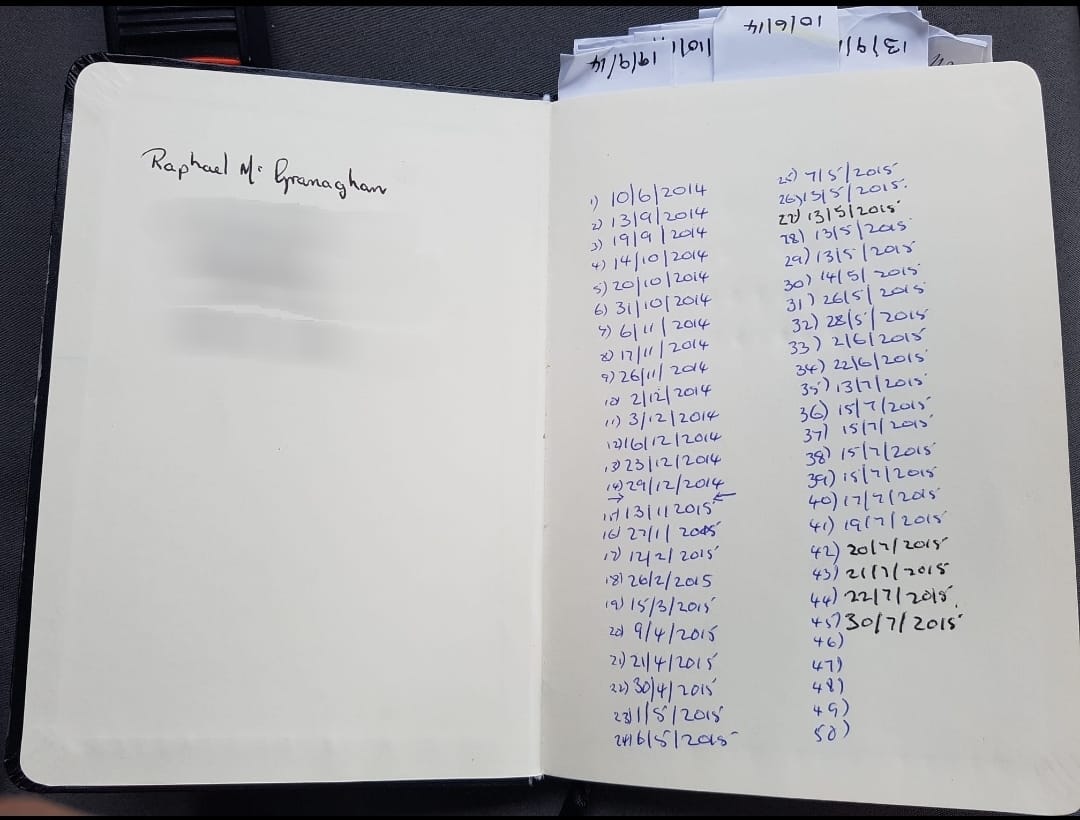 19/9/14
10/11
10/6/14
13/9/1
Raphael Mc Granaghan
1) 10/6/2014
2) 13/9/2014
3) 19/9/2014
4) 14/10/2014
5) 20/10/2014
6) 31/10/2014
7) 6/11/2014
8) 17/11/2014
9) 26/11/2014
10) 2/12/2014
11) 3/12/2014
12) 16/12/2014
13) 23/12/2014
14) 29/12/2014
→ ←
15) 13/1/2015
16) 27/1/2015
17) 12/2/2015
18) 26/2/2015
19) 15/3/2015
20) 9/4/2015
21) 21/4/2015
22) 30/4/2015
23) 1/5/2015
24) 6/5/2015
25) 7/5/2015
26) 13/5/2015.
27) 13/5/2015
28) 13/5/2015
29) 13/5/2015
30) 14/5/2015
31) 26/5/2015
32) 28/5/2015
33) 2/6/2015
34) 22/6/2015
35) 13/7/2015
36) 15/7/2015
37) 15/7/2015
38) 15/7/2015
39) 15/7/2015
40) 17/7/2015
41) 19/7/2015
42) 20/7/2015
43) 21/7/2015
44) 22/7/2015.
45) 30/7/2015
46)
47)
48)
49)
50)